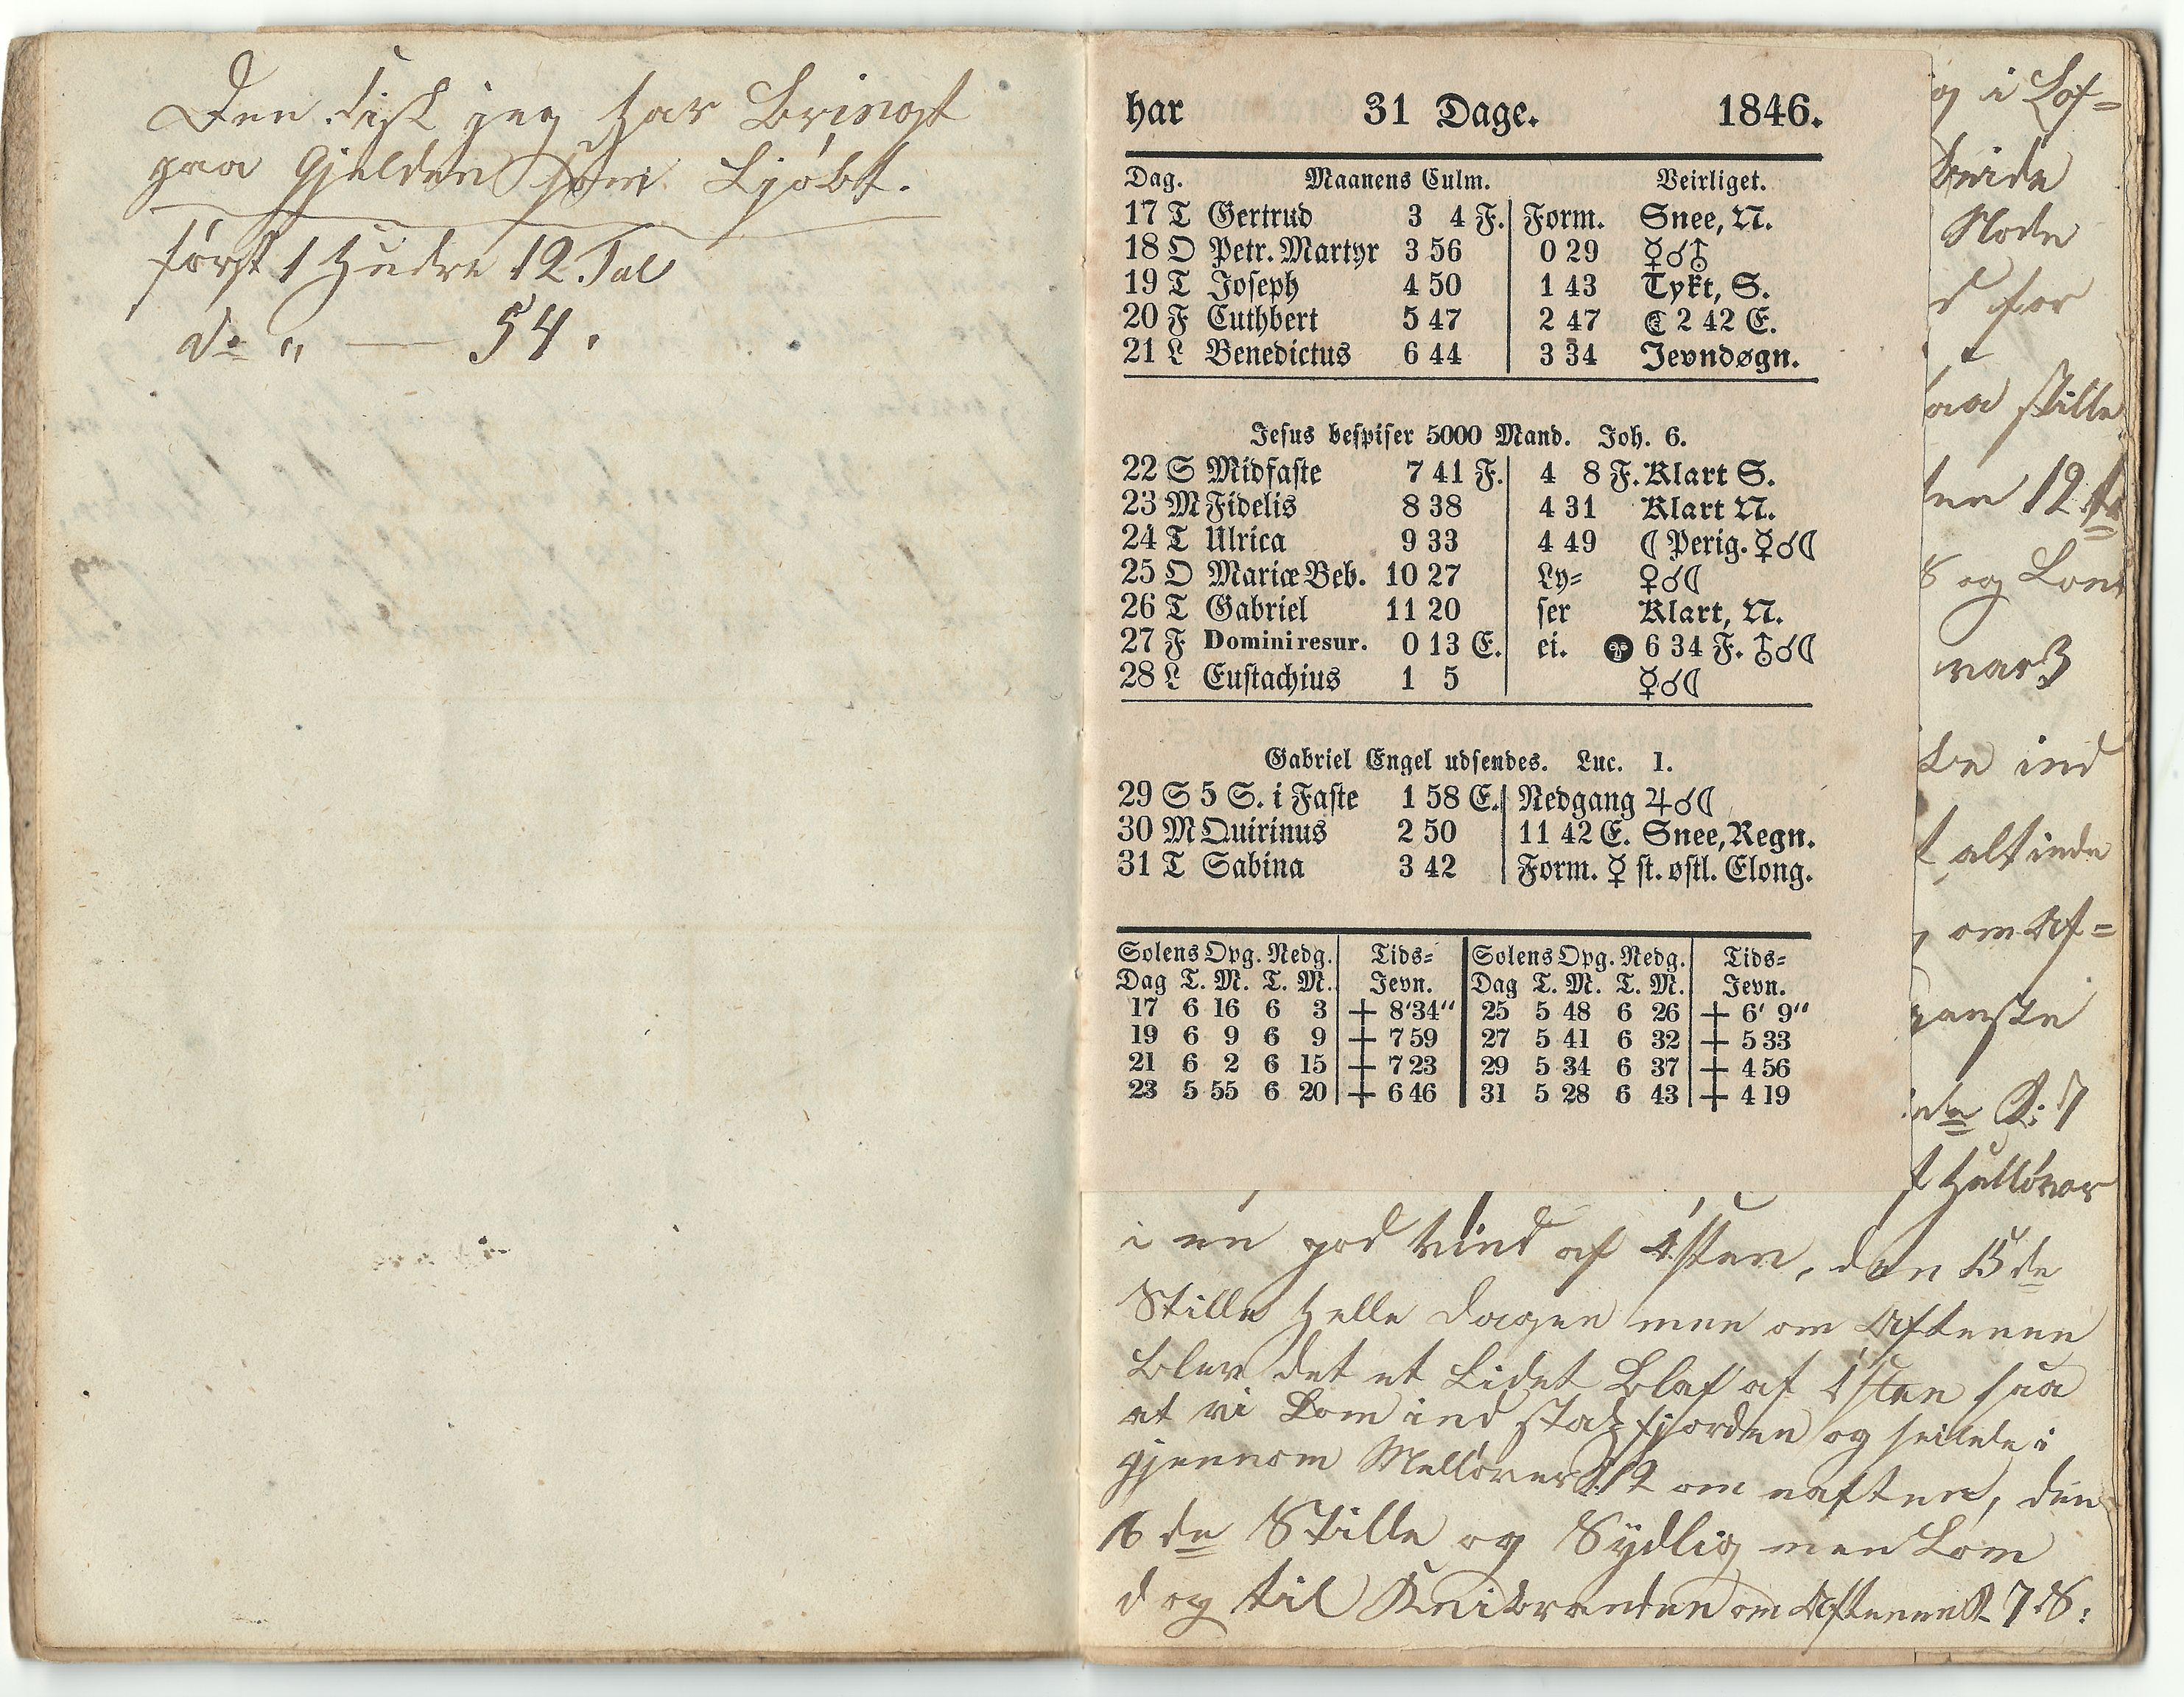 Den Fisk jeg har Bringt
paa Gjelden som Kjöbt.
först 1 Hudre 12 Tal
do " — 54.
har 31 Dage. 1846.
Dag. Maanens Culm. Veirliget.
17 T Gertrud 3 4 F. Form. Snee, N.
18 O Petr. Martyr 3 56 0 29 ☿☌⛢
19 T Joseph 4 50 1 43 Tykt, S.
20 F Cuthbert 5 47 2 47 ☾ 2 42 E.
21 L Benedictus 6 44 3 34 Jevndøgn.
Jesus bespiser 5000 Mand. Joh. 6.
22 S Midfaste 7 41 F. 4 8 F. Klart S.
23 M Fidelis 8 38 4 31 Klart N.
24 T Ulrica 9 33 4 49 ☾ Perig. ☿☌☾
25 O Mariæ Beb. 10 27 Ly= ♀☌☾
26 T Gabriel 11 20 ser Klart, N.
27 F Domini resur. 0 13 E. ei. ● 6 34 F. ⛢☌☾
28 L Eustachius 1 5 ☿☌☾
Gabriel Engel udsendes. Luc. 1.
29 S 5 S. i Faste 1 58 E. Nedgang ♃☌☾
30 M Quirinus 2 50 11 42 E. Snee, Regn.
31 T Sabina 3 42 Form. ☿ st. østl. Elong.
Solens Opg. Nedg. Tids= Solens Opg. Nedg. Tids=
Dag T. M. T. M. Jevn. Dag T. M. T. M. Jevn.
17 6 16 6 3 + 8'34" 25 5 48 6 26 + 6' 9"
19 6 9 6 9 + 7 59 27 5 41 6 32 + 5 33
21 6 2 6 15 + 7 23 29 5 34 6 37 + 4 56
23 5 55 6 20 + 6 46 31 5 28 6 43 + 4 19
g i Lof=
Node
d for
aa stille
ten 12te
8 og Kom
var 3
ke ind
t alt inde
om Af=
ganske
de K: 7
i en god Vind af Østen, den 15de
Stille Helle Dagen men om Aftenen
blev det et Lidet Blaf af Østen saa
at vi kom ind Stadfjorden og seilede i
gjennom K. 12 om natten, den
16de Stille og Sydlig men Kom
dog til om Aftenen K 7 S: